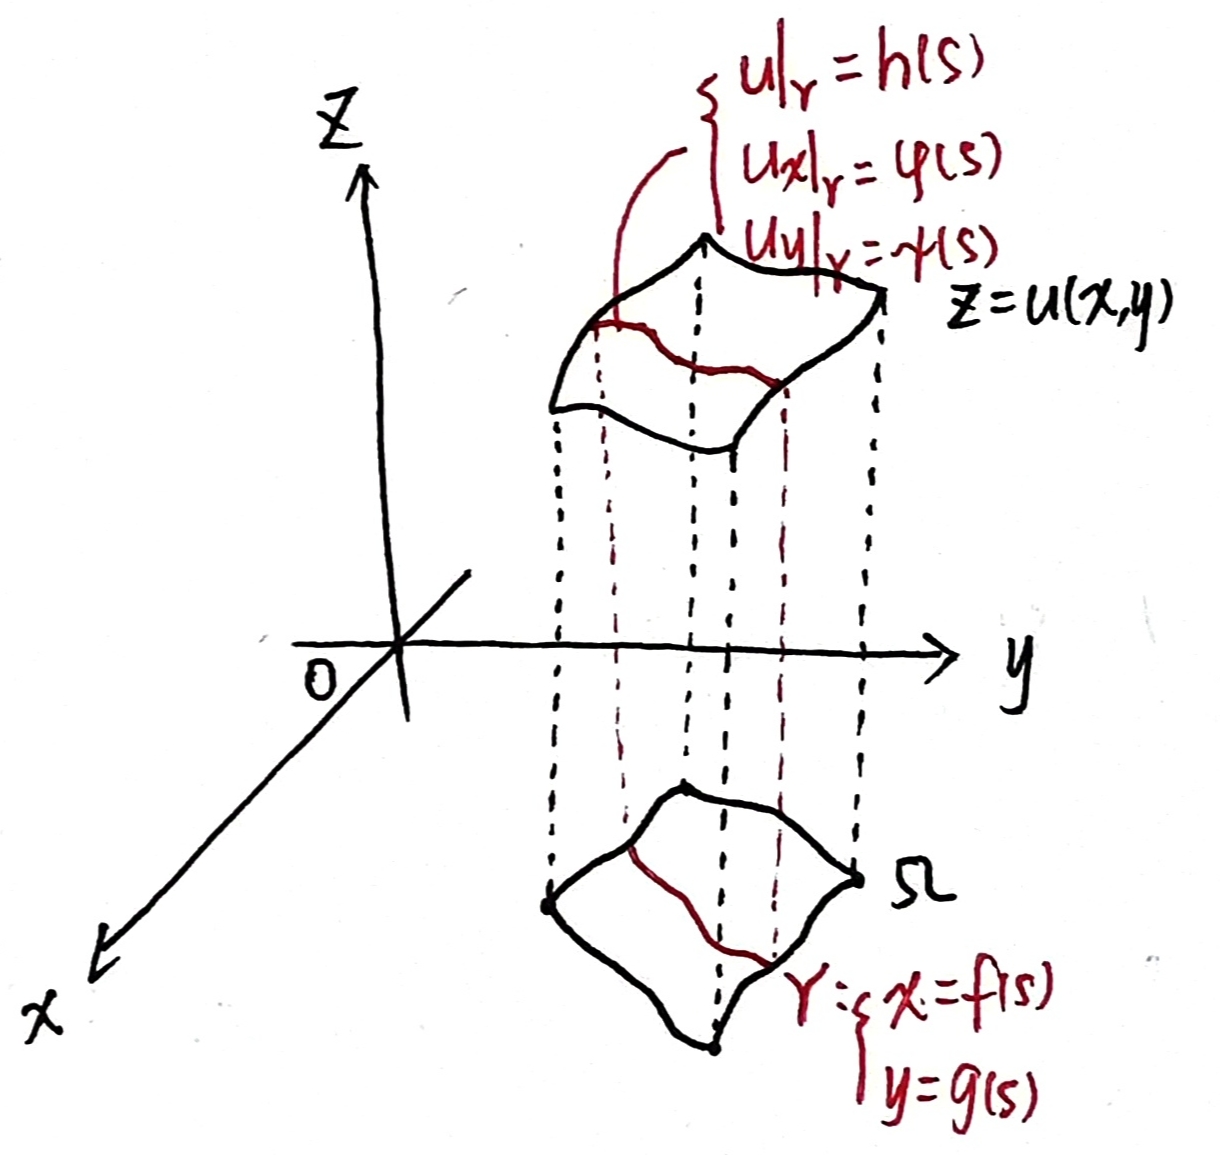 z
u|γ = h(s)
ux|γ = φ(s)
uy|γ = ψ(s)
z = u(x,y)
0
y
Ω
x
γ: { x = f(s)
y = g(s)